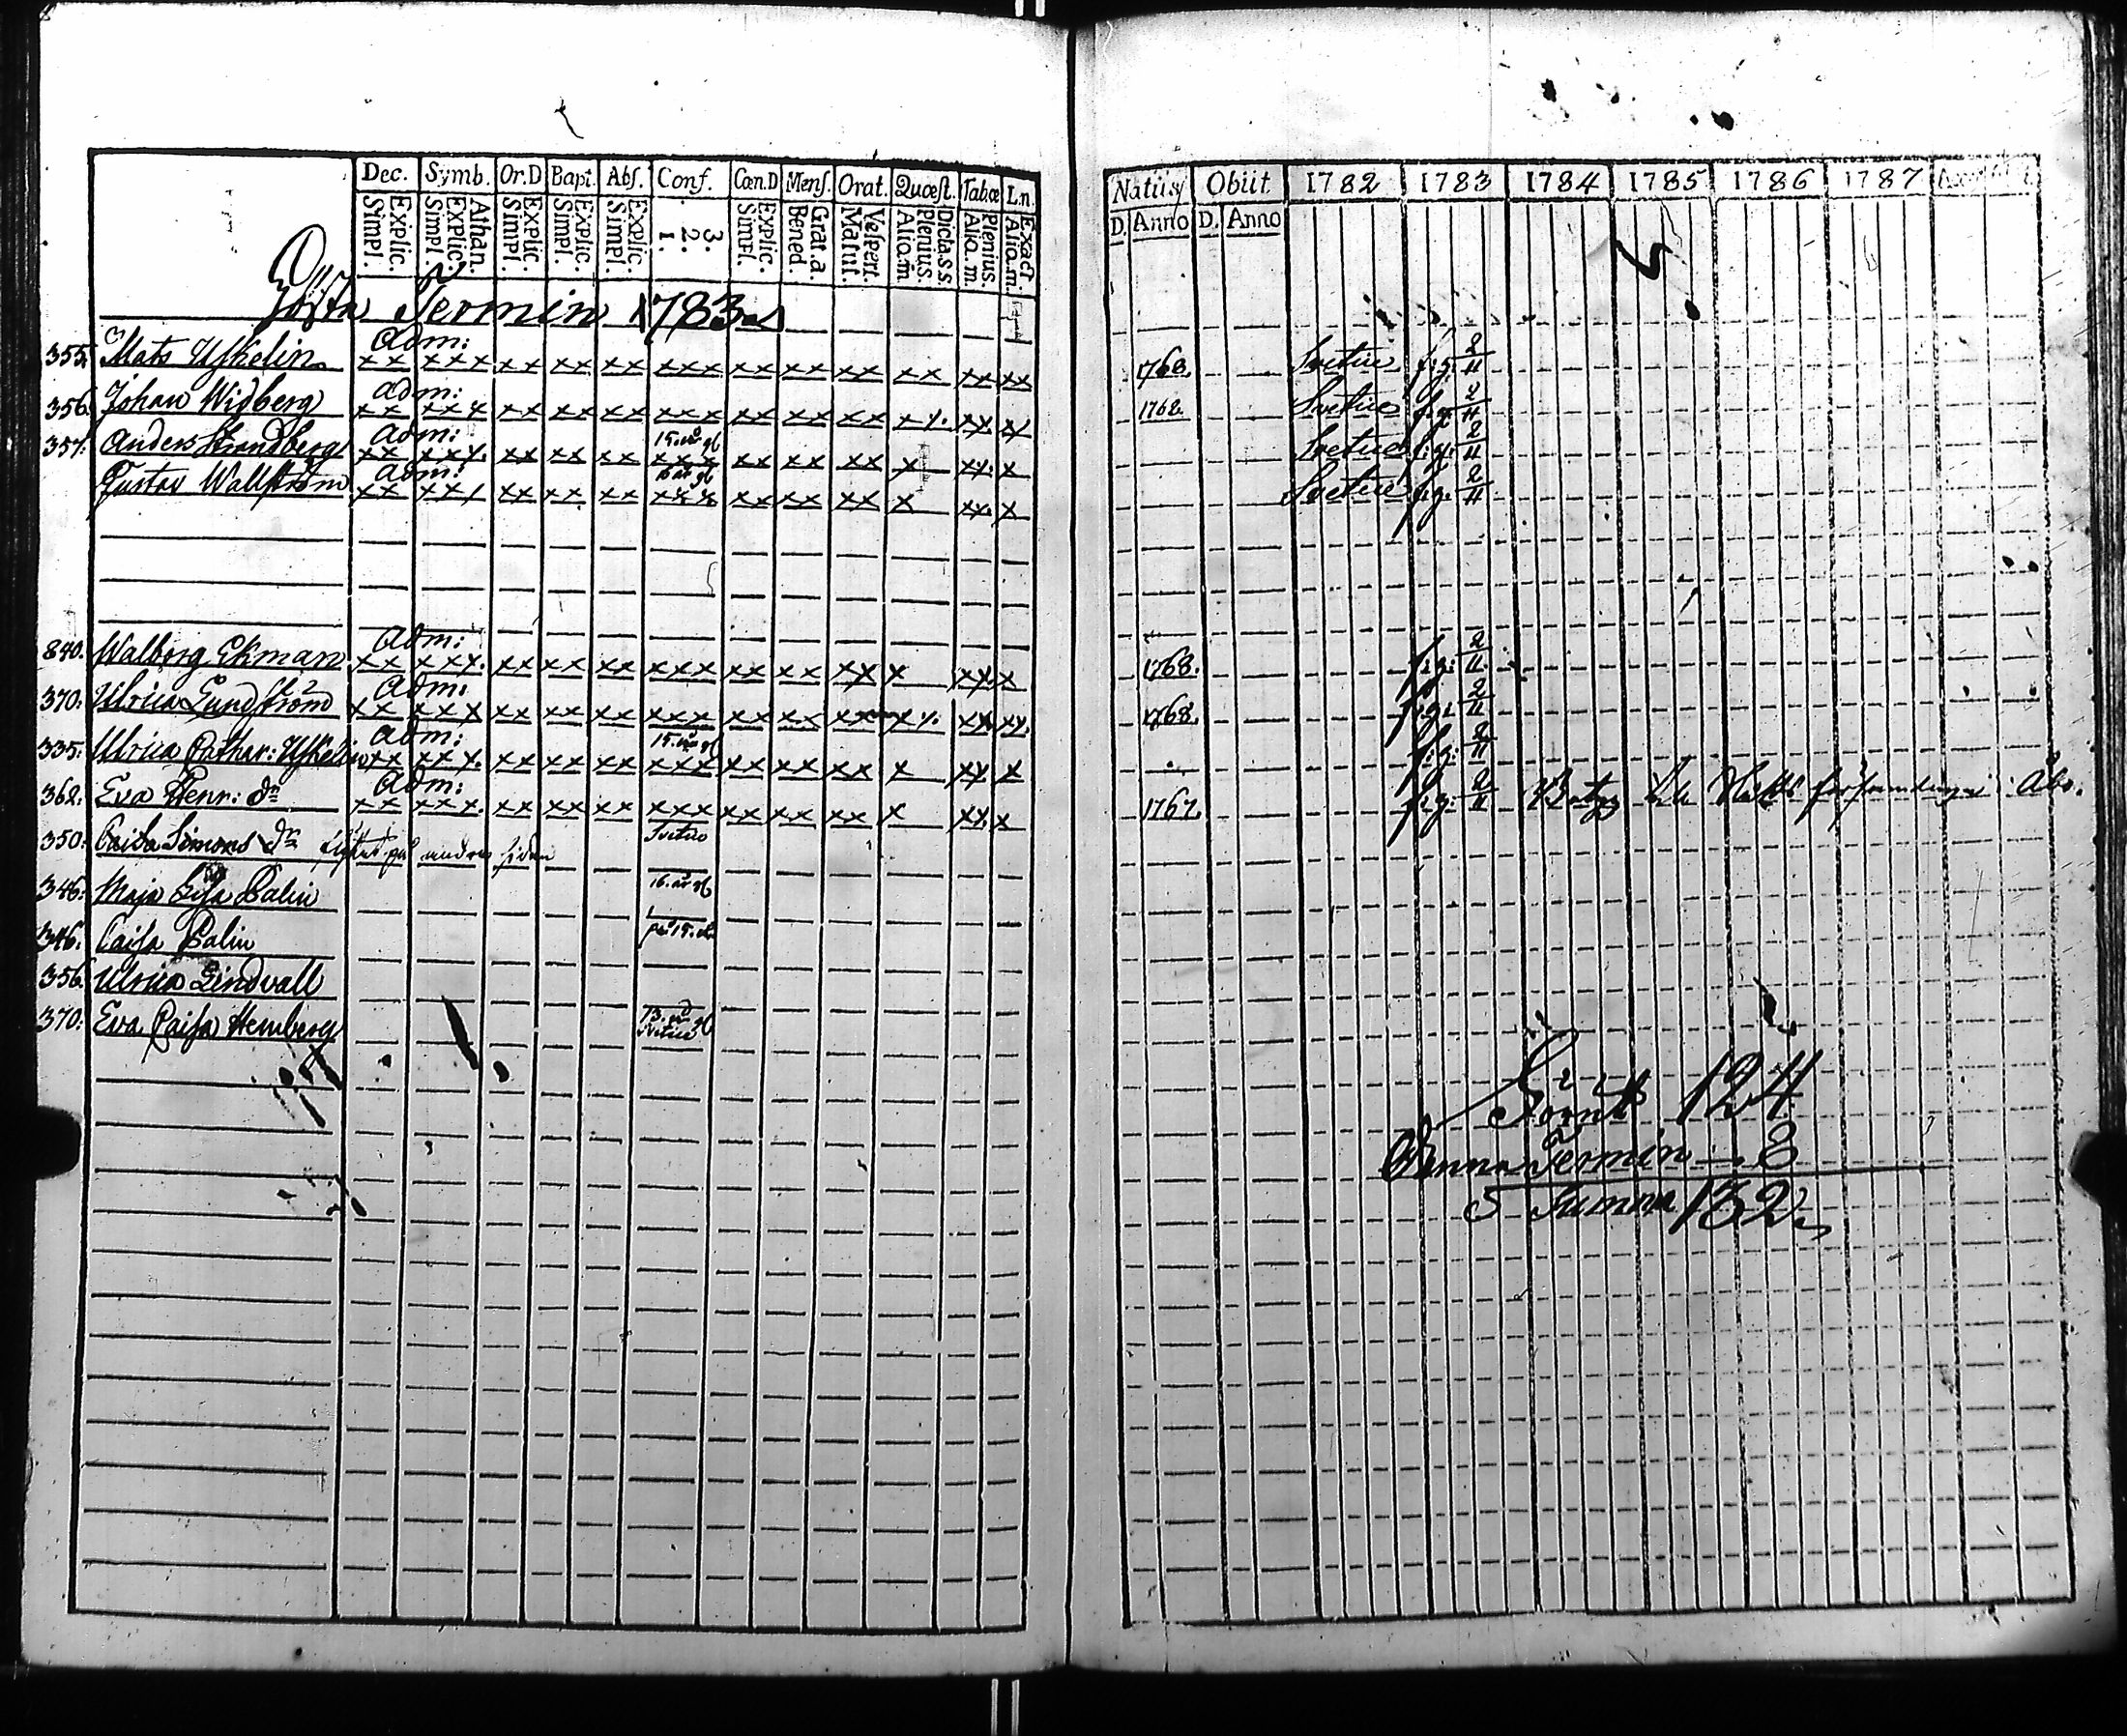 Dec. Symb. Or.D Bapt. Abs. Conf. Cœn.D Mens. Orat. Quœst. Tab.œ L.n.
Explic. Simpl. Athan. Explic. Simpl. Explic. Simpl. Explic. Simpl. Explic. Simpl. 3. 2. 1. Explic. Simpl. Grat.a. Bened. Vespert. Matut. Dicta.s.s. Plenius. Alio.m Plenius. Alio.m. Exact. Alio.m.
Natus Obiit 1782 1783 1784 1785 1786 1787
D. Anno D. Anno
Hösta Termin 1783
Adm:
355. Mats Uskelin xx xxx xx xx xx xxx xx xx xx xx xx xx 1768. Svetice f.g. 2/11
Adm:
356. Johan Widberg xx xxx xx xx xx xxx xx xx xx xx. xx xx 1768 Svetice f.g. 2/11
Adm: 15. år gl
357. Anders Strandberg xx xxx. xx xx xx xxx xx xx xx x xx. x Svetice f.g. 2/11
Adm: 16 år gl
Gustav Wallström xx xxx xx xx xx xxx xx xx xx x xx. x Svetice f.g. 2/11
Adm:
840. Walborg Ekman xx xxx. xx xx xx xxx xx xx xx x xx. x 1768. f.g. 2/11.
Adm:
370. Ulrica Lundström xx xxx xx xx xx xxx xx xx xx xx. xx xx. 1768. f.g. 2/11
Adm: 15. år gl
335. Ulrica Cathar: Uskelin xx xxx. xx xx xx xxx xx xx xx x xx x f.g. 2/11
Adm:
362. Eva Henr: dr xx xxx. xx xx xx xxx xx xx xx x xx. x 1767. f.g. 2/11 församlingen i Åbo.
350. Caisa Simons dr på andra sidan Svetice
346. Maja Lisa Palin 16. år gl
346. Caisa Palin på 15. år
356. Ulrica Lindvall
370. Eva Caisa Hemberg 13. år gl Svetice
124
Denna Termin — 8
Summa 132